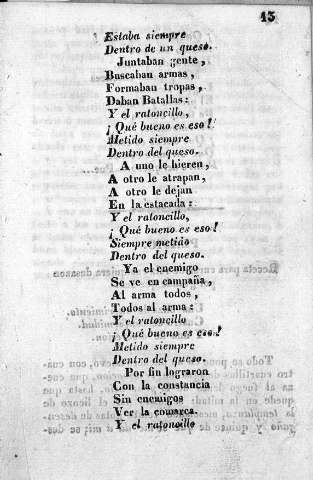 13
Estaba siempre
Dentro de un queso.
Juntaban gente,
Buscaban armas,
Formaban tropas,
Daban Batallas:
Y el ratoncillo,
¡Qué bueno es eso!
Metido siempre
Dentro del queso.
A uno le hieren,
A otro le atrapan,
A otro le dejan
En la estacada:
Y el ratoncillo,
¡Qué bueno es eso!
Siempre metido
Dentro del queso.
Ya el enemigo
Se ve en campaña,
Al arma todos,
Todos al arma:
Y el ratoncillo
¡Qué bueno es eso!
Metido siempre
Dentro del queso.
Por fin lograron
Con la constancia
Sin enemigos
Ver la comarca.
Y el ratoncillo